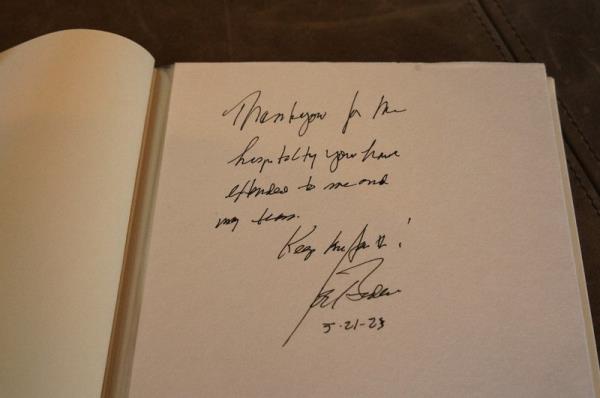 Thank you for the
hospitality you have
extended to me and
my team.
Keep the faith!
Joe Biden
5-21-23